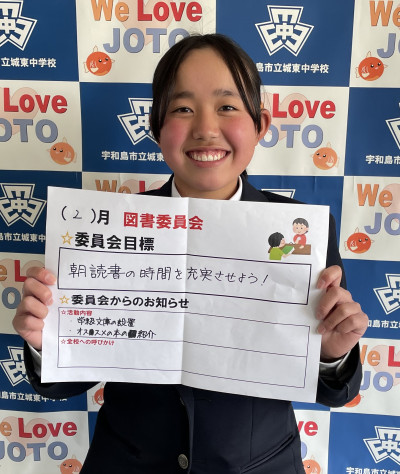 We Love
JOTO
宇和島市立城東中学校
(2)月 図書委員会
☆委員会目標
朝読書の時間を充実させよう!
☆委員会からのお知らせ
☆活動内容
・学級文庫の設置
・オススメの本の紹介
☆全校への呼びかけ